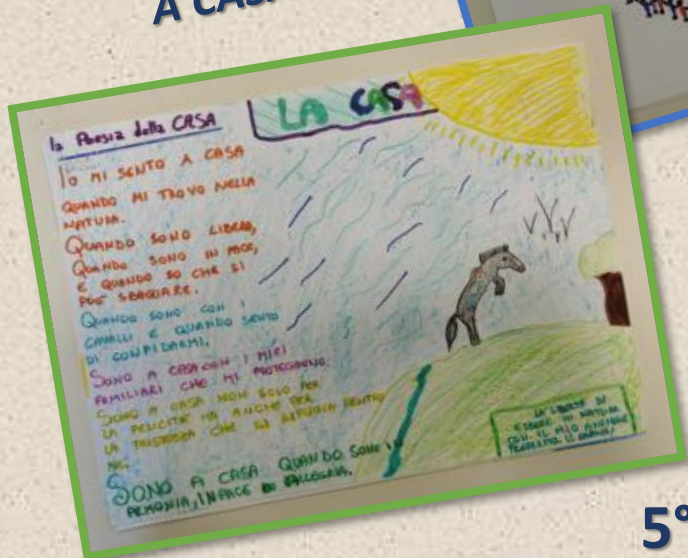 A CASA
la Poesia della CASA
LA CASA
IO MI SENTO A CASA
QUANDO MI TROVO NELLA
NATURA.
QUANDO SONO LIBERA,
QUANDO SONO IN PACE,
E QUANDO SO CHE SI
PUÒ SBAGLIARE.
QUANDO SONO CON I
CAVALLI E QUANDO SENTO
DI CONFIDARMI.
SONO A CASA CON I MIEI
FAMILIARI CHE MI PROTEGGONO.
SONO A CASA NON SOLO PER
LA FELICITÀ MA ANCHE PER
LA TRISTEZZA CHE SI DENTRO
SONO A CASA QUANDO SONO IN
ARMONIA, IN PACE ALLEGRIA.
LA LIBERTÀ DI
ESSERE IN NATURA
CON IL MIO ANIMALE
5°